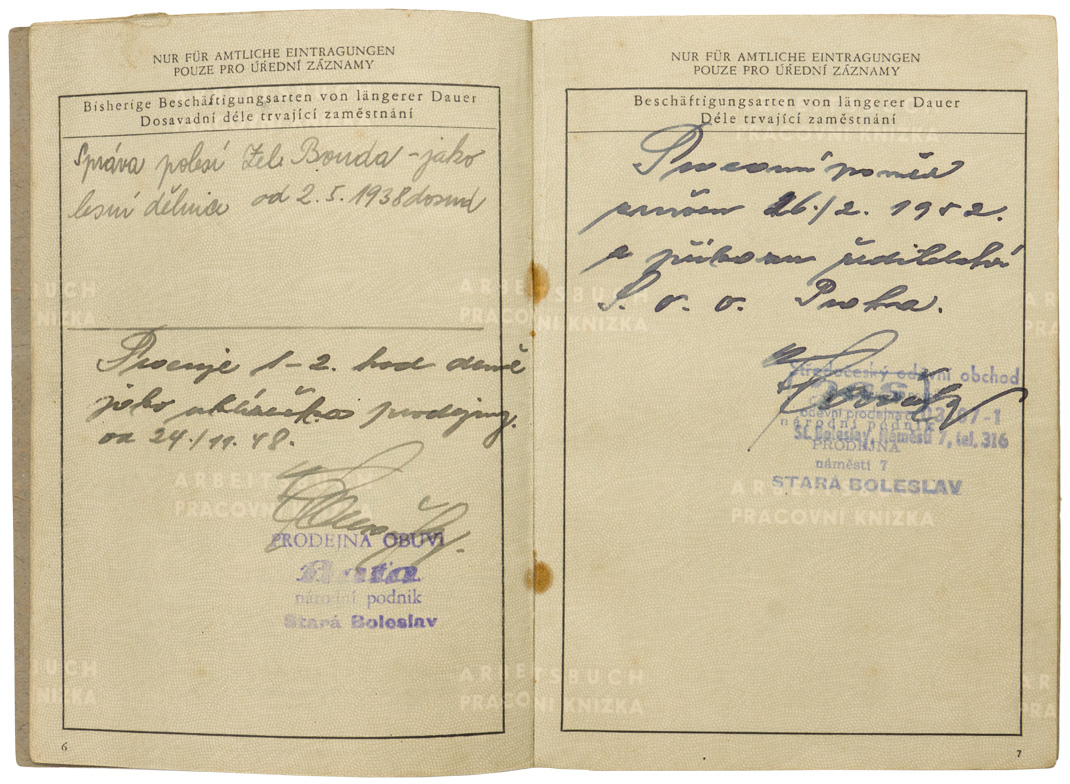 NUR FÜR AMTLICHE EINTRAGUNGEN
POUZE PRO ÚŘEDNÍ ZÁZNAMY
Bisherige Beschäftigungsarten von längerer Dauer
Dosavadní déle trvající zaměstnání
Správa polesí Bouda - jako
lesní dělnice od 2.5.1938 dosud
Pracuje 1-2. hod denně
jako uklízečka prodejny.
od 24./11.48.
PRODEJNA OBUVI
Baťa
národní podnik
Stará Boleslav
ARBEITSBUCH
PRACOVNÍ KNÍŽKA
6
NUR FÜR AMTLICHE EINTRAGUNGEN
POUZE PRO ÚŘEDNÍ ZÁZNAMY
Beschäftigungsarten von längerer Dauer
Déle trvající zaměstnání
Pracovní poměr
zrušen 26./2. 1952.
z příkazu ředitelství
S. o. o. Praha.
Středočeský oděvní obchod
oděvní prodejna
národní podnik
St. Boleslav, Náměstí 7, tel. 316
PRODEJNA
náměstí 7
STARÁ BOLESLAV
ARBEITSBUCH
PRACOVNÍ KNÍŽKA
7